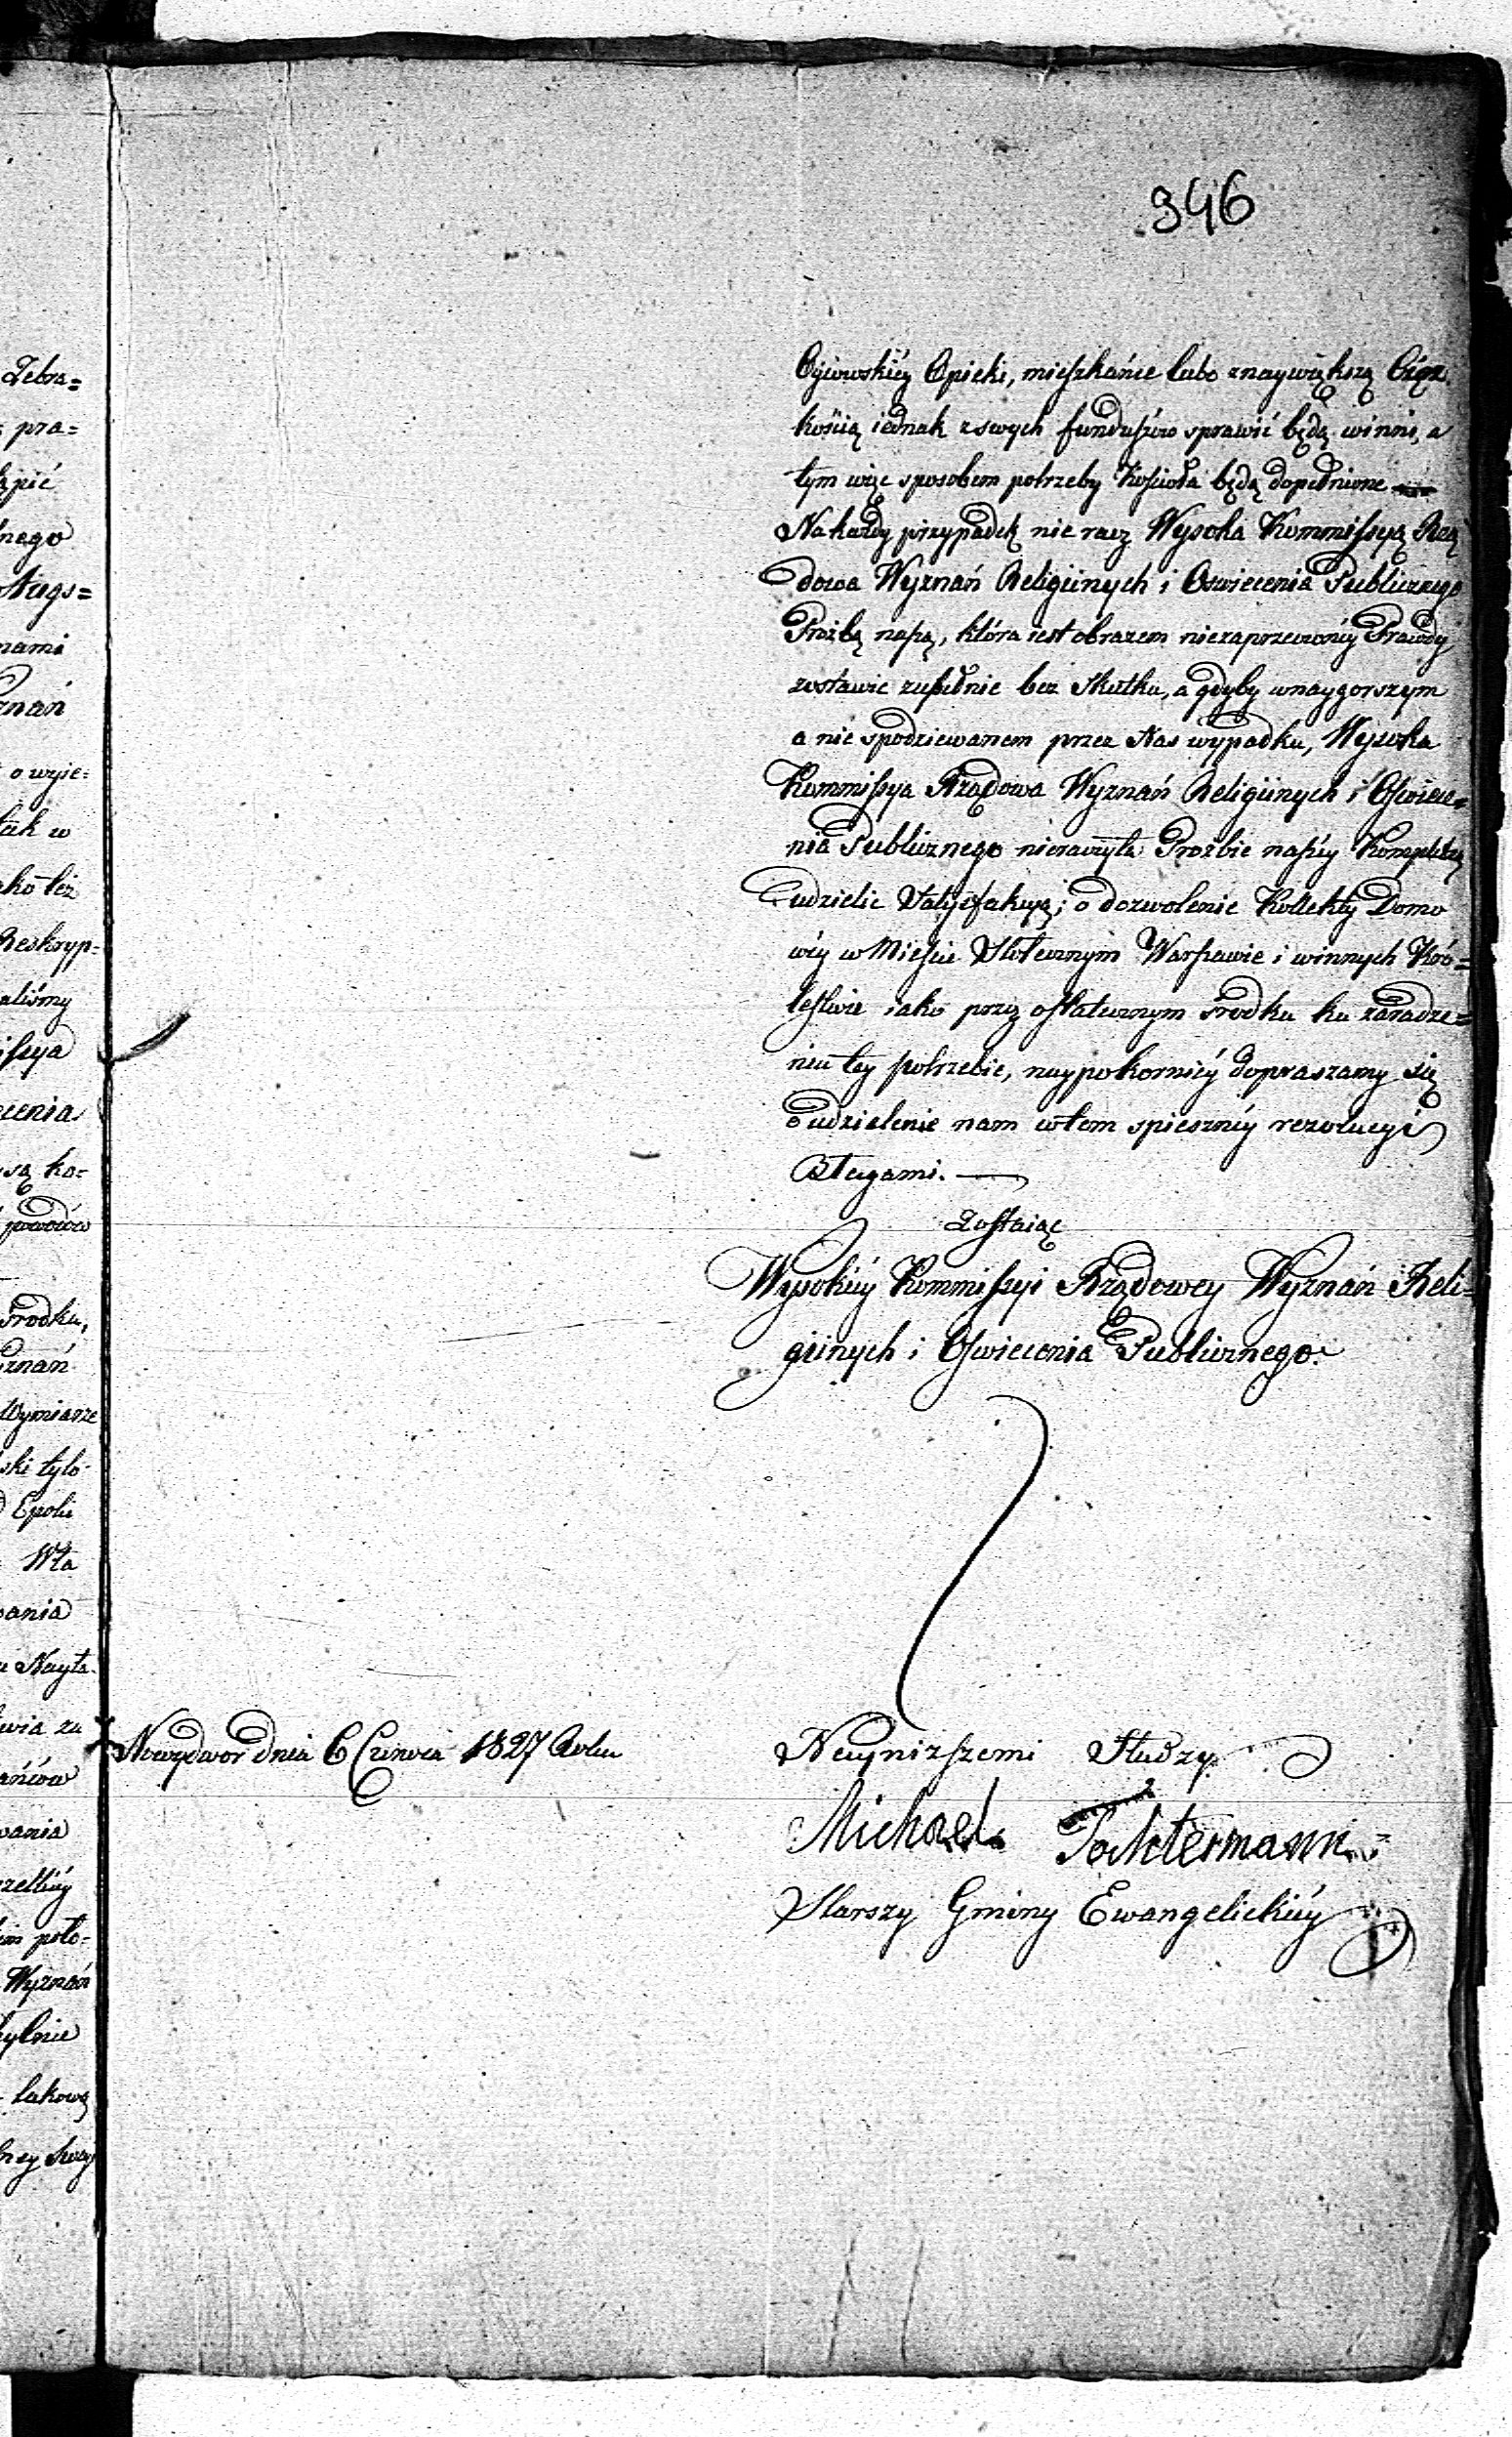 346
Oycowskiéy Opieki, mieszkańce lubo znaywiększą Cięż
kością iednak z swych funduszów sprawić będą winni, a
tym więc sposobem potrzeby Kościoła będą dopełnione
Na każdy przypadek nie racz Wysoka Kommissyą Rzą
dowa Wyznań Religiinych i Oswiecenia Publicznego
Prożbą naszą, która iest obrazem niezaprzeczonéy Prawdy
zostawic zupełnie bez skutku, a gdyby wnaygorszym
a nie spodziewanem przez Nas wypadku, Wysoka
Kommissya Rządowa Wyznań Religiinych i Oswiece=
nia Publicznego nieraczyła Prozbie naszéy Kompletną
udzielic Satysfakcyą; o dozwolenie Kollekty Domo
wéy w Mieście Stołecznym Warszawie i winnych Kró=
lestwie iako przy ostatecznym srodku ku zaradze=
niu tey potrzebie, naypokorniéy dopraszamy się
o udzielenie nam wtem spieszniéy rezolucyi
Błagami.
Zostaiąc
Wysokiéy Kommissyi Rządowey Wyznań Reli=
giinych i Oswiecenia Publicznego.
Nowydwor dnia 6 Czerwca 1827 Roku
Nayniższemi Słudzy
Michael Tochtermann
Starszy Gminy Ewangelickiéy
Zebra=
pra=
ąpić
nego
Augs=
nami
znań
o wyie=
tak w
ako też
Reskryp=
aliśmy
issya
cenia
są ko=
powodów
srodku,
znań
Wymiarze
ski tylo
Epoki
Wła
ania
Nayła
wia za
ańców
wania
zelkiéy
im poło=
Wyznań
ylnie
łakową
ney swey